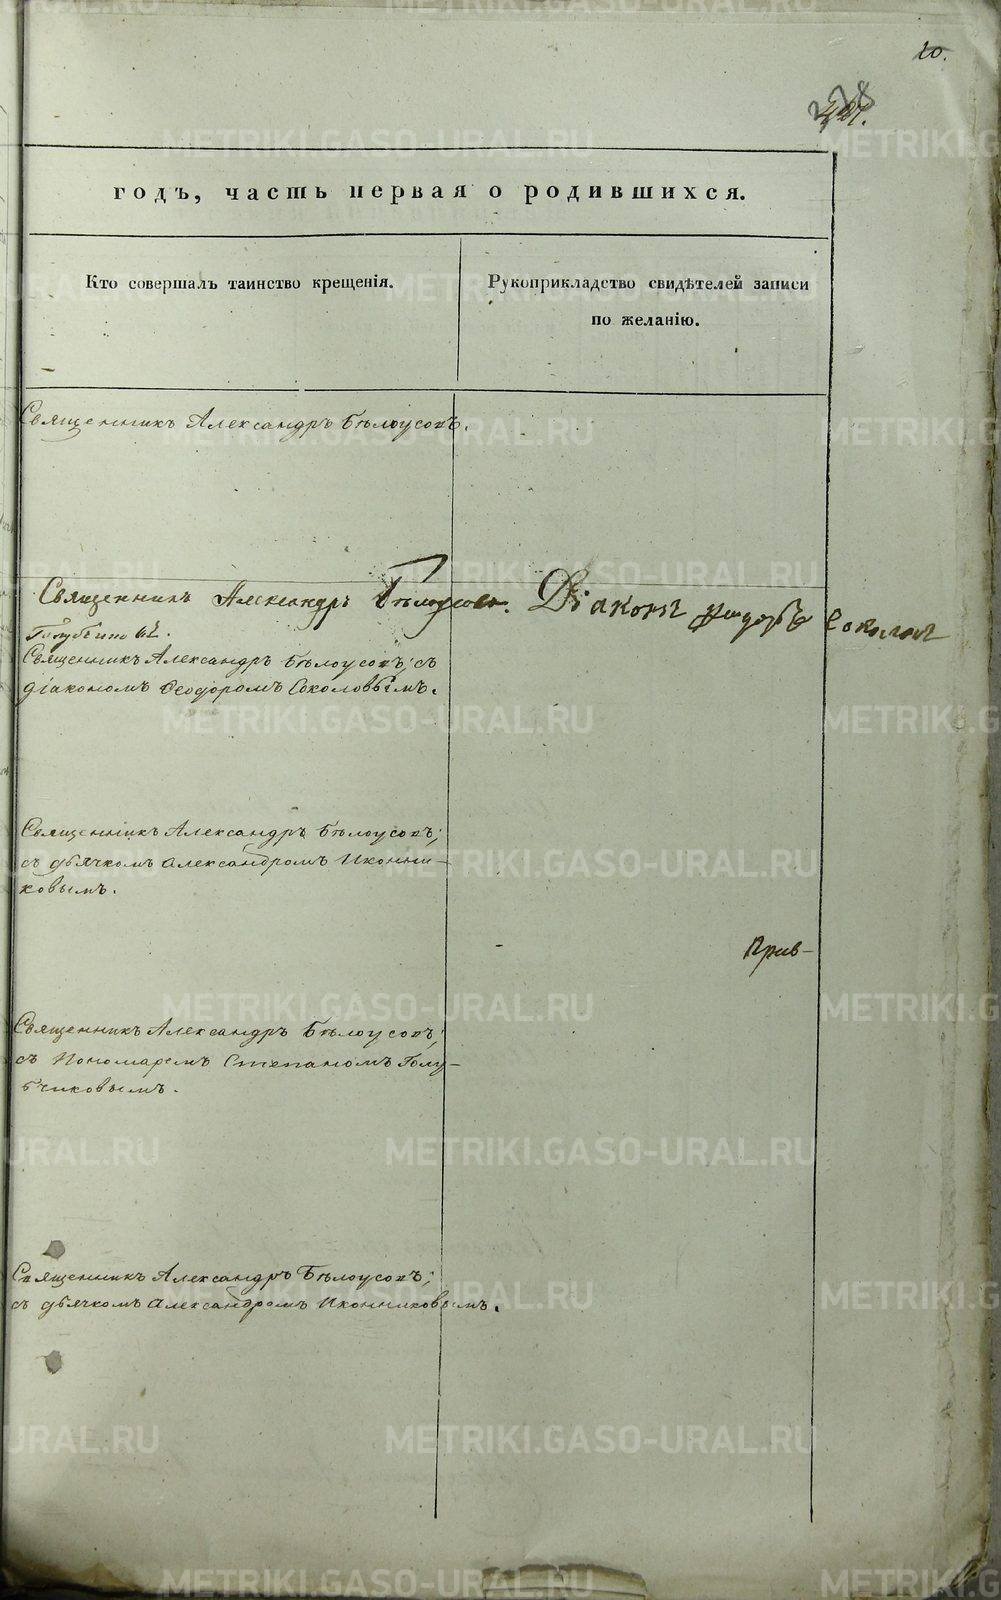 10.
годъ, часть первая о родившихся.
Кто совершалъ таинство крещенія.
Рукоприкладство свидѣтелей записи
по желанію.
Священникъ Александръ Бѣлоусовъ.
Священникъ Александръ Бѣлоусовъ. Діаконъ Ѳеодоръ Соколовъ
Священникъ Александръ Бѣлоусовъ; съ
діакономъ Ѳеодоромъ Соколовымъ.
Священникъ Александръ Бѣлоусовъ;
съ дьячкомъ Александромъ Иконни-
ковымъ.
Прив-
Священникъ Александръ Бѣлоусовъ;
съ Пономаремъ Степаномъ Голу-
бчиковымъ.
Священникъ Александръ Бѣлоусовъ;
съ дьячкомъ Александромъ Иконниковымъ.
METRIKI.GASO-URAL.RU